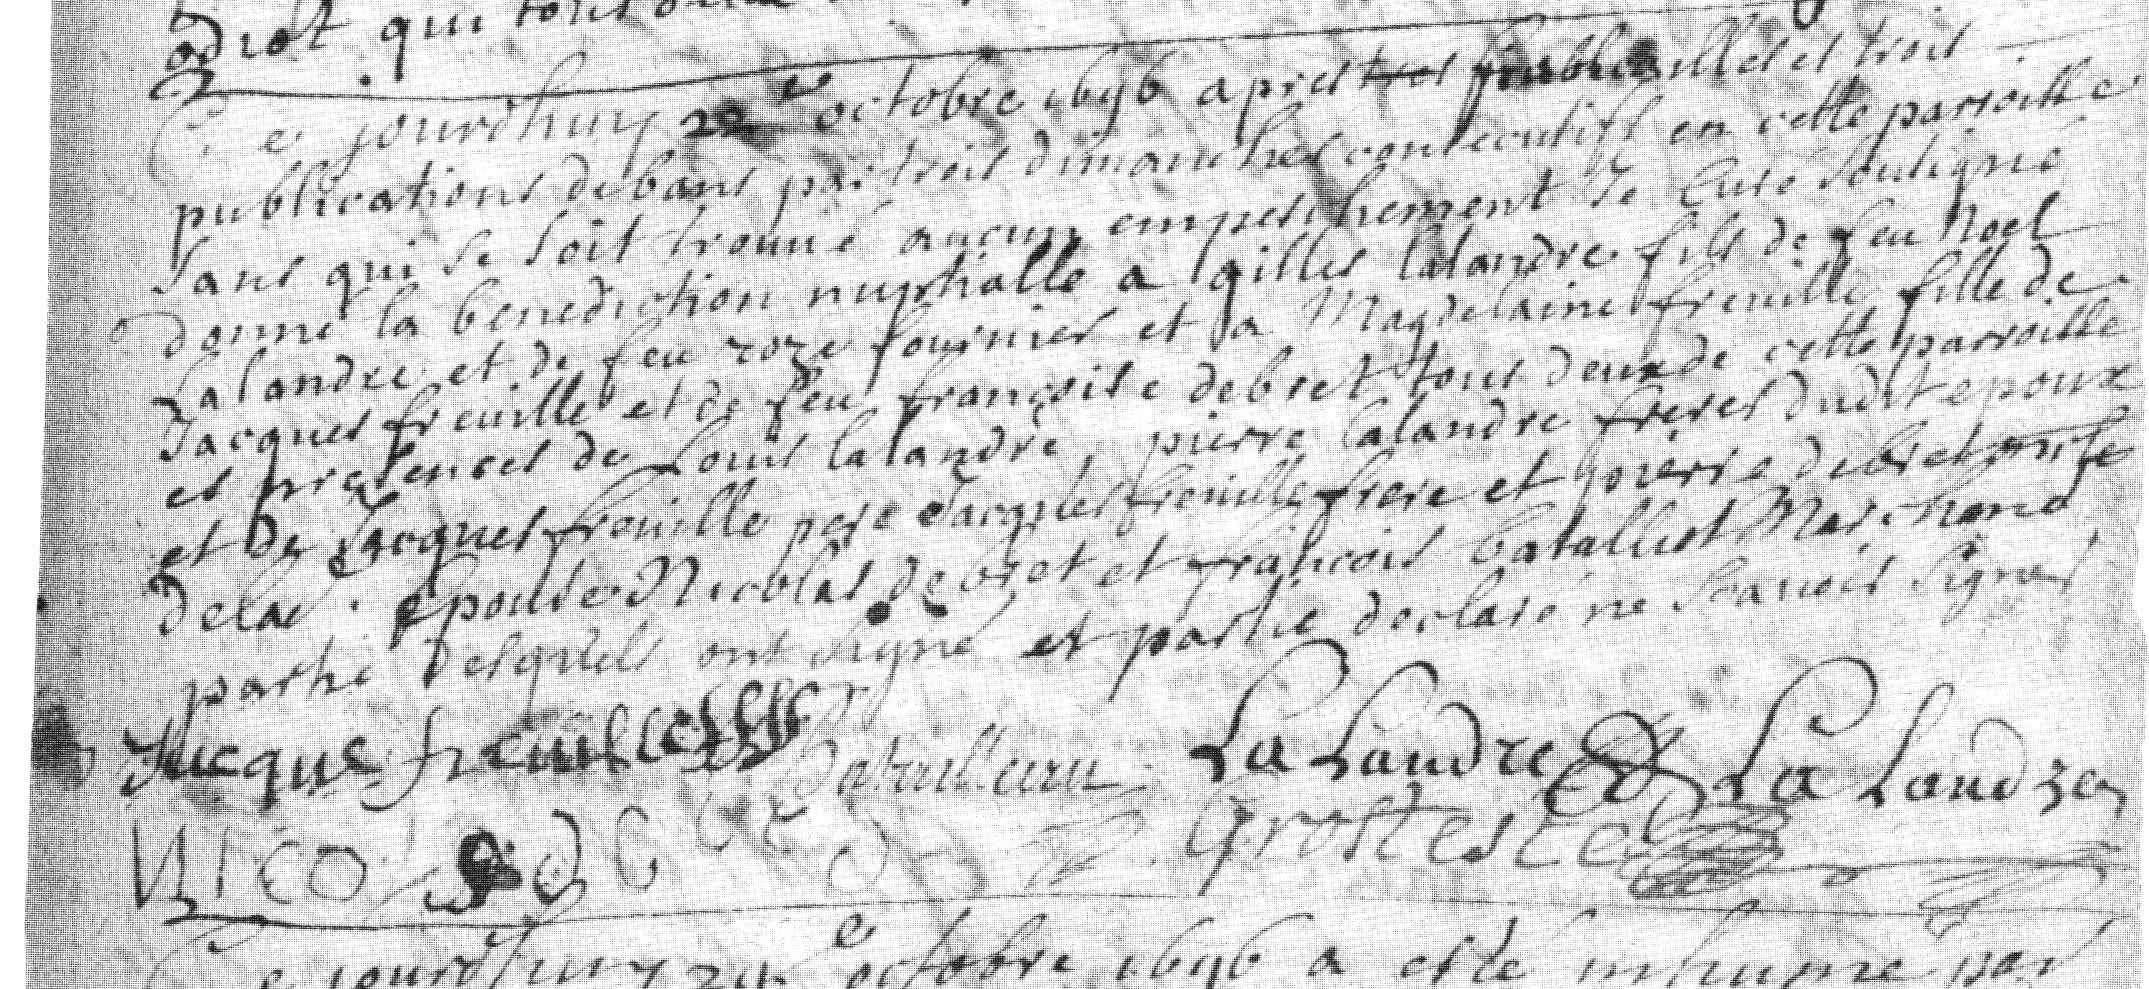 qui tous
Ce jourdhuy 22e octobre 1696 apres fiansailles et trois
publications de bans par trois dimanches consecutifs en cette parroisse
sans qui se soit trouué aucun empeschement Je Curé souligné
donné la benediction nuptialle a gilles lalandre fils de feu Noel
Lalandre et de feu roze fournier et a Magdelaine freuille fille de
Jacques freuille et de feu françoise debret tous deux de cette parroisse
es presences de Louis lalandre, pierre lalandre freres dudit epoux
et De Jacques freuille pere Jacques freuille frere et debret
de lad. Epouse Nicolas de bret et francois Marchand
partie desquels ont signé et partie declaré ne scauoir signer
Jacque freuille La Landre La Landre
Nicola de b Grossetete
Ce jourdhuy 24e octobre 1696 a esté inhumé par